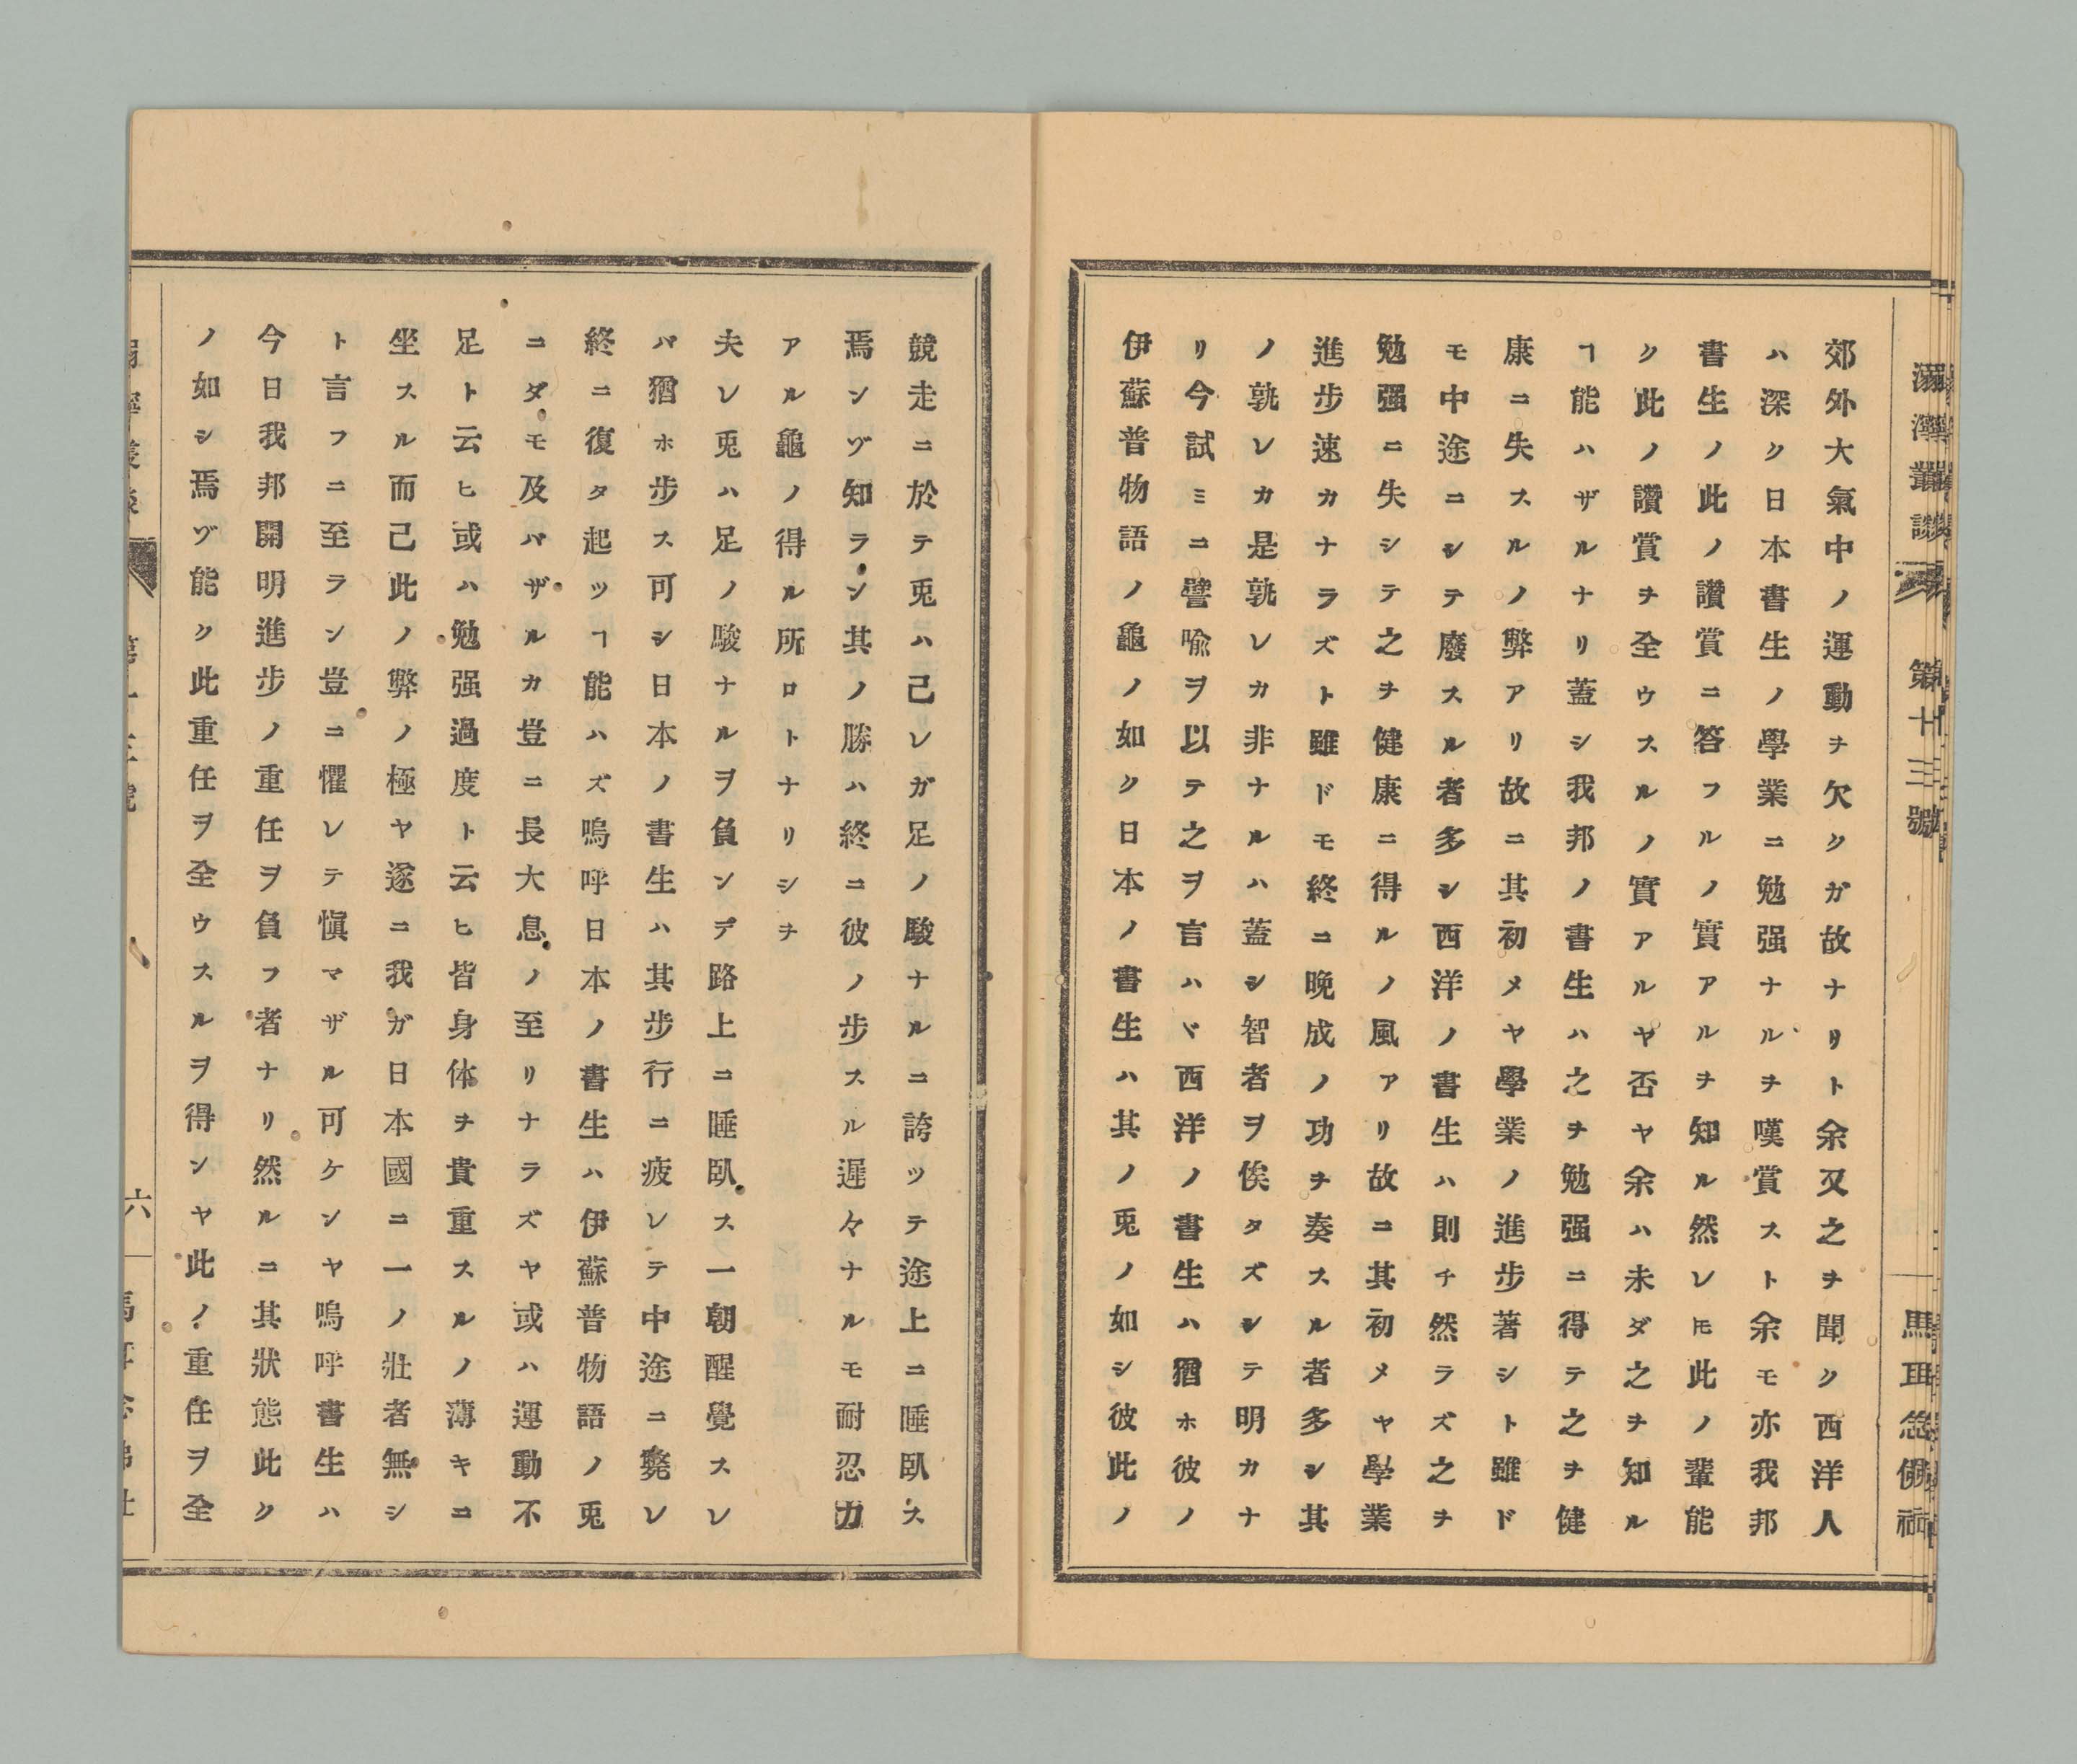 溺濘叢談 第十三號 馬耳念佛社
郊外大氣中ノ運動ヲ欠クガ故ナリト余又之ヲ聞ク西洋人
ハ深ク日本書生ノ學業ニ勉强ナルヲ嘆賞スト余モ亦我邦
書生ノ此ノ讚賞ニ答フルノ實アルヲ知ル然レ𪜈此ノ輩能
ク此ノ讚賞ヲ全ウスルノ實アルヤ否ヤ余ハ未ダ之ヲ知ル
ヿ能ハザルナリ蓋シ我邦ノ書生ハ之ヲ勉强ニ得テ之ヲ健
康ニ失スルノ弊アリ故ニ其初メヤ學業ノ進步著シト雖ド
モ中途ニシテ廢スル者多シ西洋ノ書生ハ則チ然ラズ之ヲ
勉强ニ失シテ之ヲ健康ニ得ルノ風アリ故ニ其初メヤ學業
進步速カナラズト雖ドモ終ニ晚成ノ功ヲ奏スル者多シ其
ノ孰レカ是孰レカ非ナルハ蓋シ智者ヲ俟タズシテ明カナ
リ今試ミニ譬喩ヲ以テ之ヲ言ハヾ西洋ノ書生ハ猶ホ彼ノ
伊蘇普物語ノ龜ノ如ク日本ノ書生ハ其ノ兎ノ如シ彼此ノ
競走ニ於テ兎ハ己レガ足ノ駿ナルニ誇ッテ途上ニ睡臥ス
焉ンゾ知ラン其ノ勝ハ終ニ彼ノ步スル遲々ナルモ耐忍力
アル龜ノ得ル所ロトナリシヲ
夫レ兎ハ足ノ駿ナルヲ負ンデ路上ニ睡臥ス一朝醒覺スレ
バ猶ホ步ス可シ日本ノ書生ハ其步行ニ疲レテ中途ニ斃レ
終ニ復タ起ッヿ能ハズ嗚呼日本ノ書生ハ伊蘇普物語ノ兎
ニダモ及バザルカ豈ニ長大息ノ至リナラズヤ或ハ運動不
足ト云ヒ或ハ勉强過度ト云ヒ皆身体ヲ貴重スルノ薄キニ
坐スル而己此ノ弊ノ極ヤ遂ニ我ガ日本國ニ一ノ壯者無シ
ト言フニ至ラン豈ニ懼レテ愼マザル可ケンヤ嗚呼書生ハ
今日我邦開明進步ノ重任ヲ負フ者ナリ然ルニ其狀態此ク
ノ如シ焉ゾ能ク此重任ヲ全ウスルヲ得ンヤ此ノ重任ヲ全
六